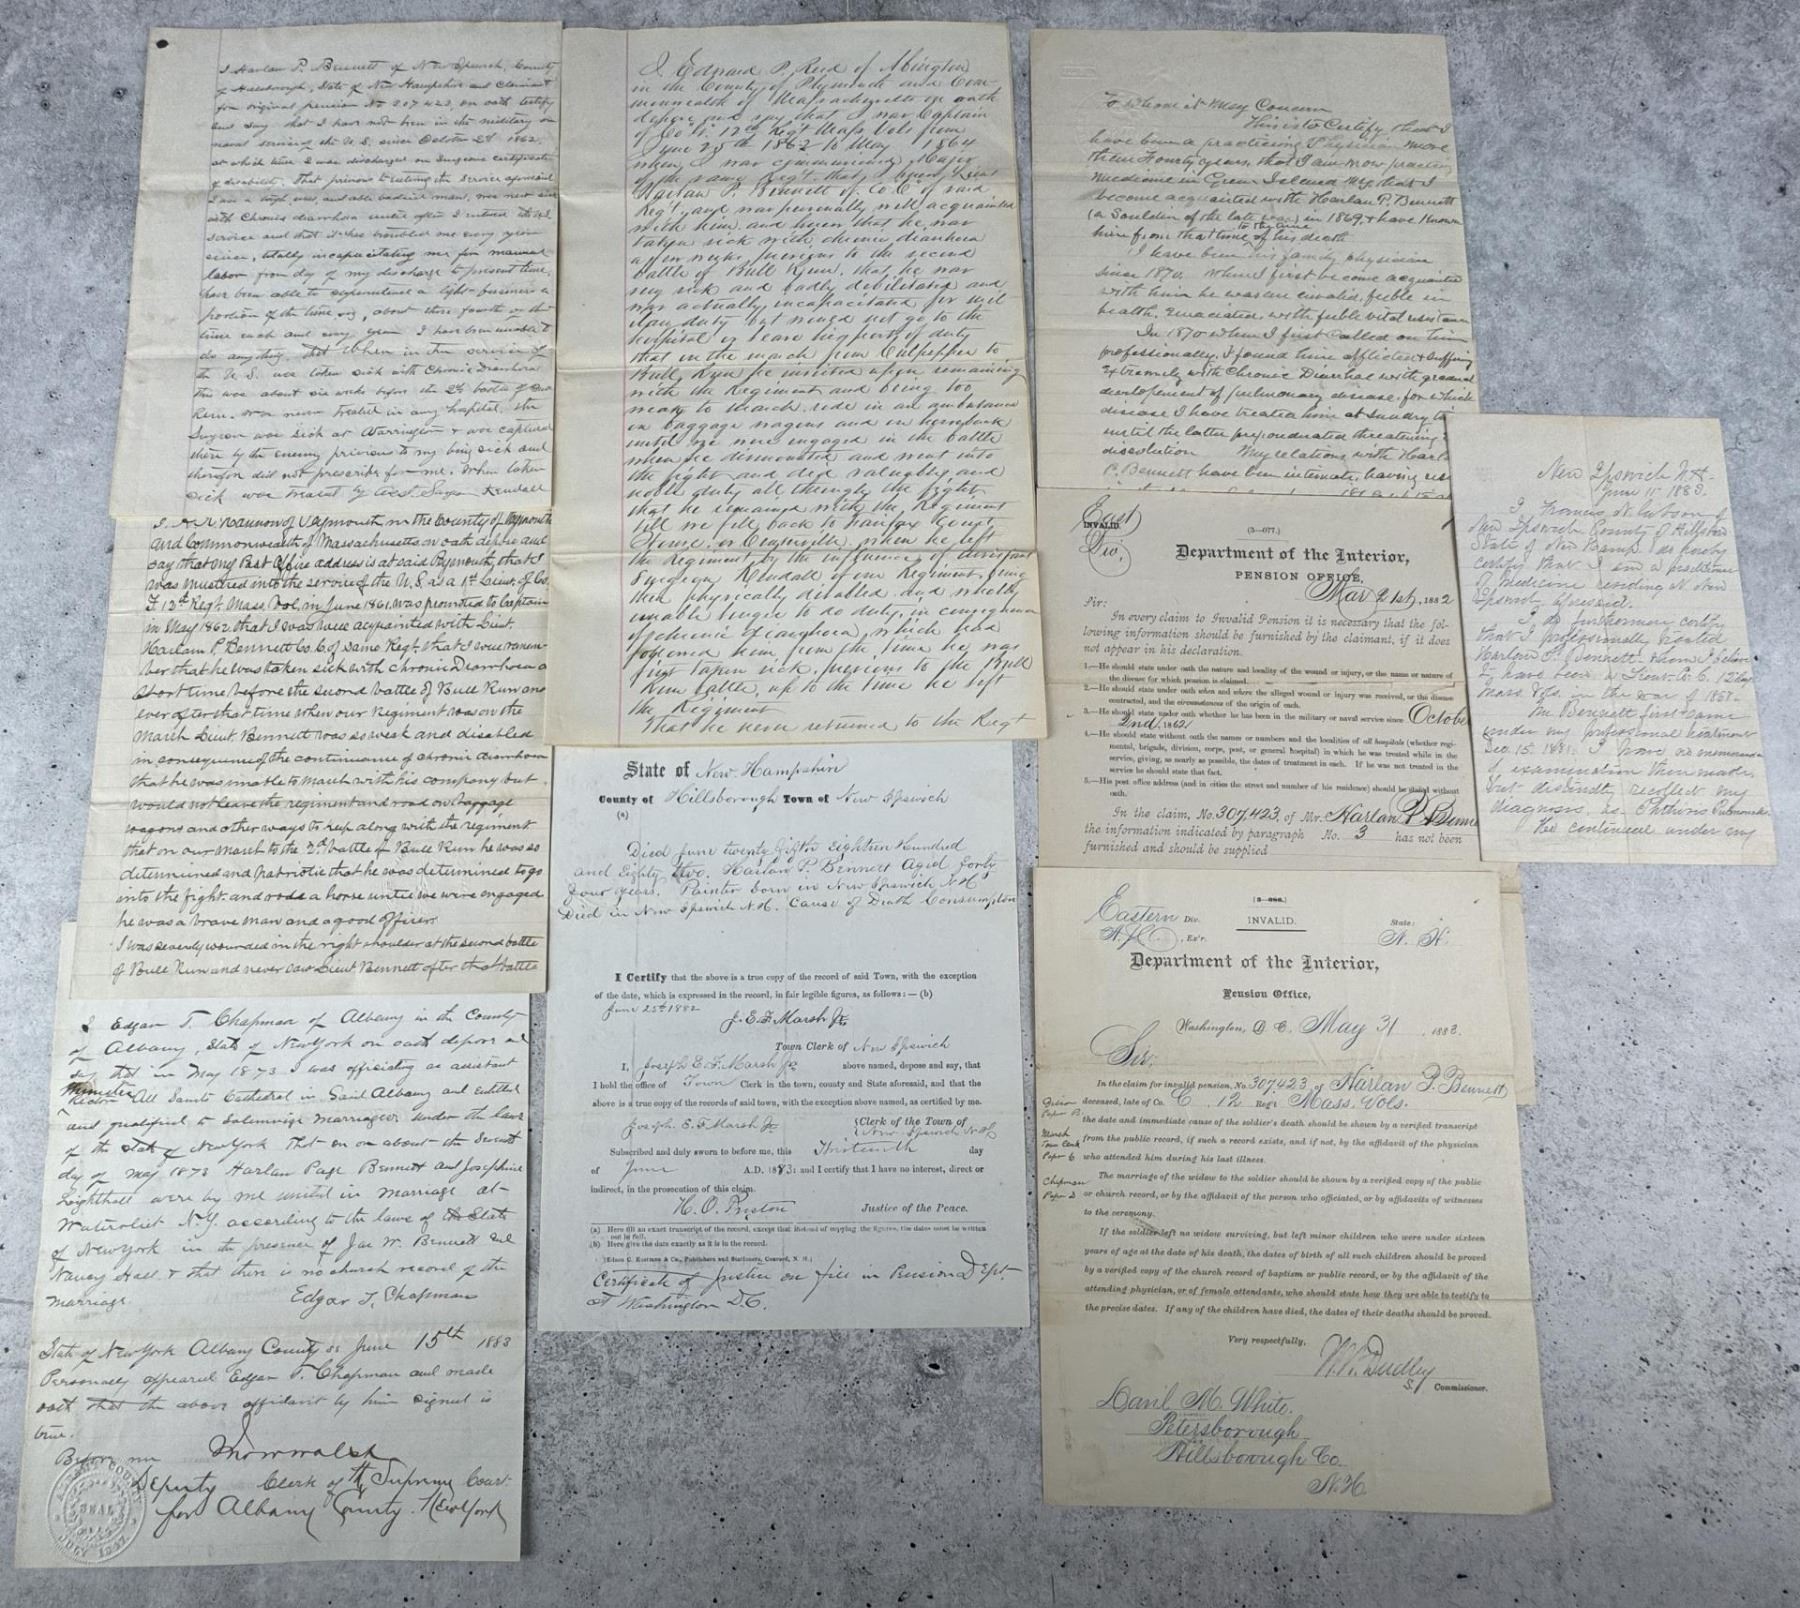 I Harlan P. Bennett of New Ipswich, County
of Hillsborough, State of New Hampshire and Claimant
for original pension No 307.423, on oath testify
and say that I have not been in the military or
naval service of the U.S. since October 2d 1862,
at which time I was discharged on Surgeons certificate
of disability. That previous to entering the service aforesaid
I was a tough, and able bodied man, was never sick
with Chronic diarrhoea until after I entered the U.S.
service and that it has troubled me every year
since, totally incapacitating me for manual
labor from day of my discharge to present time,
have been able to superintend a light business a
portion of the time, about three fourth of the
time each and every year I have been unable to
do any thing. That when in the service of
the U.S. was taken sick with Chronic Diarrhoea
this was about six weeks before the 2d battle of Bull
Run. was never treated in any hospital, the
Surgeon was sick at Warrington & was captured
there by the enemy previous to my being sick and
therefore did not prescribe for me. When taken
sick was treated by Asst. Surgeon Kendall
I, A. R. of Weymouth in the County of Plymouth
and Commonwealth of Massachusetts on oath depose and
say that my Post Office address is at said Plymouth, that I
was mustered into the service of the U.S. as a 1st Lieut. of Co.
12th Regt. Mass. Vol. in June 1861, was promoted to Captain
in May 1862 that I was well acquainted with Lieut.
Harlan P. Bennett Co. C. of same Regt. that I well remem-
ber that he was taken sick with Chronic Diarrhoea a
short time before the second battle of Bull Run and
ever after that time when our Regiment was on the
March Lieut. Bennett was so weak and disabled
in consequence of the continuance of chronic diarrhoea
that he was unable to march with his company but
would not leave the regiment and road on baggage
wagons and other ways to keep along with the regiment
that on our march to the 2d battle of Bull Run he was so
determined and patriotic that he was determined to go
into the fight, and rode a horse until we were engaged
he was a brave man and a good officer
I was severely wounded in the right shoulder at the second battle
of Bull Run and never saw Lieut Bennett after that battle
I Edgar T. Chapman of Albany in the County
of Albany, State of New York on oath depose and
say that in May 1873 I was officiating as assistant
Minister
All Saints Cathedral in said Albany and entitled
and qualified to solemnize marriages under the laws
of the State of New York That on or about the seventh
day of May 1873 Harlan Page Bennett and Josephine
Lighthall were by me united in marriage at
Watervliet N.Y. according to the laws of the State
of New York in the presence of Jas W. Bennett and
Nancy Hall & that there is no church record of the
marriage
Edgar T. Chapman
State of New York Albany County ss June 15th 1883
Personally appeared Edgar T. Chapman and made
oath that the above affidavit by him signed is
true.
Before me
Deputy Clerk of the Supreme Court
for Albany County. New York
SEAL
I Edward P. Reed of Abington
in the County of Plymouth and Com-
monwealth of Massachusetts on oath
depose and say that I was Captain
of Co 12th Regt Mass Vols from
June 25th 1862 to May 1864
when I was commissioned Major
of the same Regt. that I knew Lieut
Harlan P. Bennett of Co. C of said
Regt. and was personally well acquainted
with him and know that he was
taken sick with chronic diarrhoea
a few weeks previous to the second
battle of Bull Run. that he was
very sick and badly debilitated and
was actually incapacitated for mil-
itary duty but would not go to the
hospital or leave his post of duty
that on the march from Culpepper to
Bull Run he insisted upon remaining
with the Regiment and being too
weak to march, rode in an ambulance
on baggage wagons and on horseback
until we were engaged in the battle
when he dismounted and went into
the fight and did valuable and
noble duty all through the fight
that he remained with the Regiment
till we fell back to Fairfax Court
House, or Centreville, when he left
the Regiment by the influence of Assistant
Surgeon Kendall of our Regiment, being
then physically disabled and wholly
unable longer to do duty, in consequence
of chronic diarrhoea, which had
followed him from the time he was
first taken sick, previous to the Bull
Run battle, up to the time he left
the Regiment
That he never returned to the Regt
State of New Hampshire
County of Hillsborough Town of New Ipswich
(a)
Died June twenty fifth Eighteen hundred
and Eighty two. Harlan P. Bennett Aged forty
four years. Painter born in New Ipswich N.H.
Died in New Ipswich N.H. Cause of Death Consumption
I Certify that the above is a true copy of the record of said Town, with the exception
of the date, which is expressed in the record, in fair legible figures, as follows:—(b)
June 25th 1882
J. E. F. Marsh Jr.
Town Clerk of New Ipswich
I, Joseph E. F. Marsh Jr. above named, depose and say, that
I hold the office of Town Clerk in the town, county and State aforesaid, and that the
above is a true copy of the records of said town, with the exception above named, as certified by me.
Joseph E. F. Marsh Jr. Clerk of the Town of
New Ipswich N.H.
Subscribed and duly sworn to before me, this Thirteenth day
of June A.D. 1883: and I certify that I have no interest, direct or
indirect, in the prosecution of this claim.
H. O. Preston Justice of the Peace.
(a) Here fill an exact transcript of the record, except that instead of copying the figures, the dates must be written
out in full.
(b) Here give the date exactly as it is in the record.
[Edson C. Eastman & Co., Publishers and Stationers, Concord, N. H.]
Certificate of Justice on file in Pension Dept.
At Washington D.C.
To Whome it May Concern
This is to Certify that I
have been a practicing Physician more
than Fourty years, that I am now practicing
medicine in Green Island N.Y. that I
become acquainted with Harlan P. Bennett
(a Souldier of the late war) in 1869 & have known
him from that time to the time of his death
I have been his family physician
since 1870. When I first become acquainted
with him he was an invalid, feeble in
health, emaciated with feeble vital resistance
In 1870 when I first called on him
professionally, I found him afflicted & suffering
extremely with Chronic Diarrhea with gradual
developement of pulmonary disease, for which
disease I have treated him at sundry times
until the latter preponderated threatening
dissolution My relations with Harlan
P. Bennett have been intimate, having
East
INVALID.
Div.
(3—077.)
Department of the Interior,
PENSION OFFICE,
Mar 21st, 1882
Sir:
In every claim to Invalid Pension it is necessary that the fol-
lowing information should be furnished by the claimant, if it does
not appear in his declaration.
1.—He should state under oath the nature and locality of the wound or injury, or the name or nature of
the disease for which pension is claimed.
2.—He should state under oath when and where the alleged wound or injury was received, or the disease
contracted, and the circumstances of the origin of each.
3.—He should state under oath whether he has been in the military or naval service since October
2nd, 1862
4.—He should state without oath the names or numbers and the localities of all hospitals (whether regi-
mental, brigade, division, corps, post, or general hospital) in which he was treated while in the
service, giving, as nearly as possible, the dates of treatment in each. If he was not treated in the
service he should state that fact.
5.—His post office address (and in cities the street and number of his residence) should be stated without
oath.
In the claim, No. 307.423, of Mr. Harlan P. Benne
the information indicated by paragraph No. 3 has not been
furnished and should be supplied
New Ipswich N.H.
June 15 1883.
I Francis N. Gibson of
New Ipswich County of Hillsboro
State of New Hamp. do hereby
certify that I am a practitioner
of Medicine residing at New
Ipswich aforesaid.
I do furthermore certify
that I professionally treated
Harlow P. Bennett whom I believe
to have been a Lieut. in C. 12 Reg
Mass Vols. in the war of 1861.
Mr Bennett first came
under my professional treatment
Dec. 15. 1881. I have no memoranda
of examination then made,
but distinctly recollect my
diagnosis, as Phthisis Pulmonalis.
He continued under my
(3—066.)
Eastern Div. INVALID. State:
, Ex'r. N. H.
Department of the Interior,
Pension Office,
Washington, D. C. May 31, 1883.
Sir:
In the claim for invalid pension, No. 307.423 of Harlan P. Bennett
deceased, late of Co. C 12 Reg't Mass. Vols.
the date and immediate cause of the soldier's death should be shown by a verified transcript
from the public record, if such a record exists, and if not, by the affidavit of the physician
who attended him during his last illness.
Gibson
Paper B.
Marsh
Town Clerk
Paper C
The marriage of the widow to the soldier should be shown by a verified copy of the public
or church record, or by the affidavit of the person who officiated, or by affidavits of witnesses
to the ceremony.
Chapman
Paper D
If the soldier left no widow surviving, but left minor children who were under sixteen
years of age at the date of his death, the dates of birth of all such children should be proved
by a verified copy of the church record of baptism or public record, or by the affidavit of the
attending physician, or of female attendants, who should state how they are able to testify to
the precise dates. If any of the children have died, the dates of their deaths should be proved.
Very respectfully,
W. W. Dudley
Commissioner.
Danl M. White.
Petersborough
Hillsborough Co
N.H.